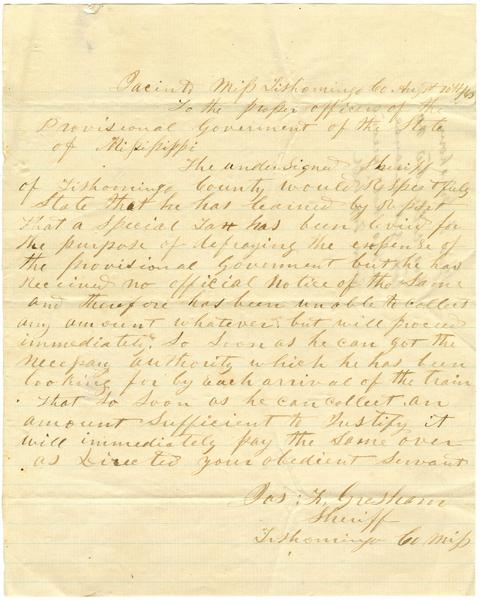 Jacinto Miss Tishomingo Co Augt 20th/65
To the proper officers of the
Provisional Goverment of the State
of Missisippi
The undersigned Sheriff
of Tishomingo County would Respectfuly
State that he has learned by Report
that a special Tax has been levied for
the purpose of defraying the expense of
the provisional Goverment but he has
Received no official Notice of the Same
and therefore has been unable to collect
any amount whatever but will proceed
immediately So soon as he can get the
necessary authority which he has been
looking for by each arrival of the train
that so soon as he can collect an
amount sufficient to Justify it
will immediately pay the same over
as Directed your obedient servant
Gresham
Sheriff
Tishomingo Co Miss